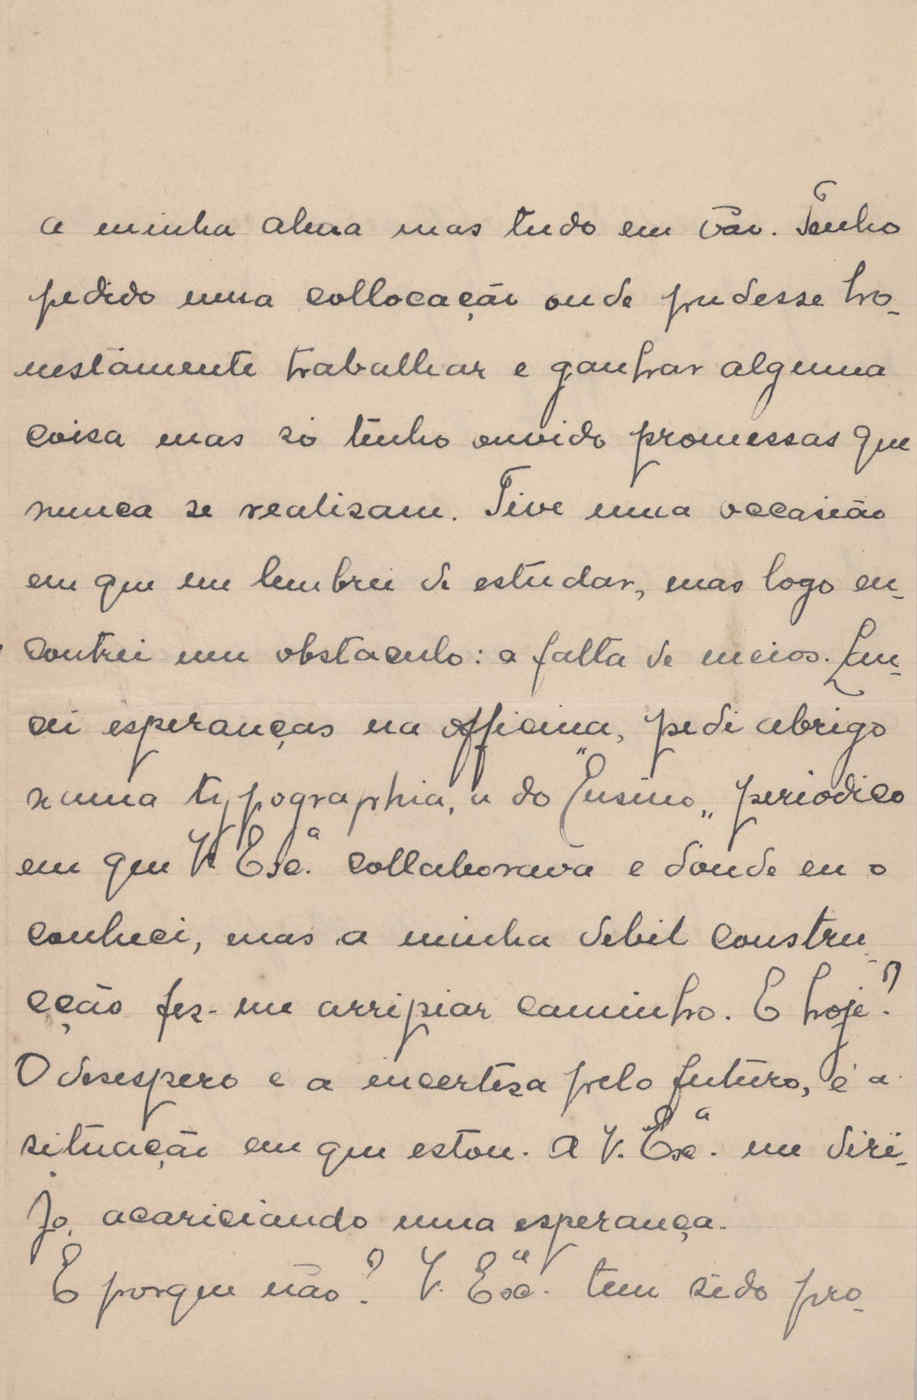 a minha alma mas tudo em vão. Tenho
pedido uma collocação onde pudesse ho-
nestamente trabalhar e ganhar alguma
coisa mas só tenho ouvido promessas que
nunca se realisam. Tive uma occasião
em que me lembrei de estudar, mas logo en-
contrei um obstaculo: a falta de meios. Lan-
cei esperanças na officina, pedi abrigo
numa typographia, a do "Ensino„ periodico
em que V. Exª. collaborava e donde eu o
conheci, mas a minha debil constru-
cção fez-me arripiar caminho. E hoje?
O desespero e a incertesa pelo futuro, é a
situação em que estou. A V. Exª. me diri-
jo, acariciando uma esperança.
E porque não? V. Exª. tem sido pro-